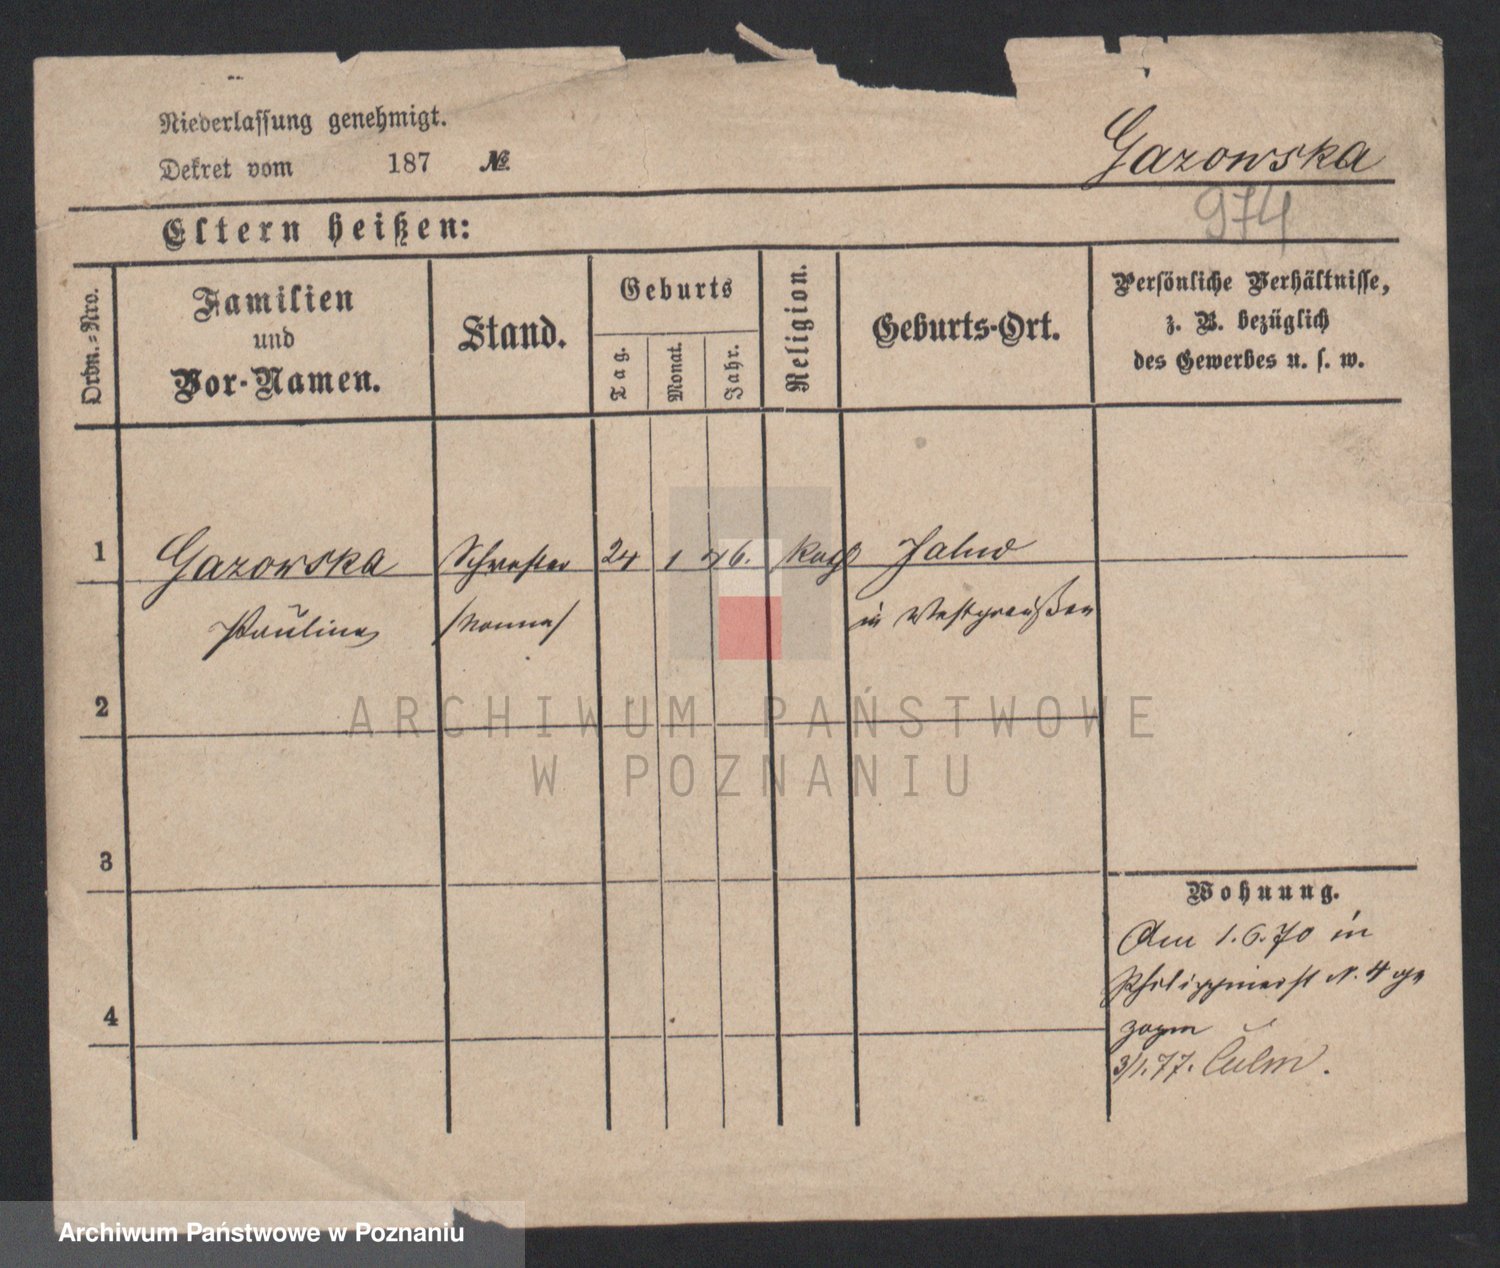 Niederlassung genehmigt.
Dekret vom 187 №
Gazowska
974
Eltern heißen:
Ordn.-Nro.
Familien
und
Vor-Namen.
Stand.
Geburts
Tag.
Monat.
Jahr.
Religion.
Geburts-Ort.
Persönliche Verhältnisse,
z. B. bezüglich
des Gewerbes u. s. w.
1 Gazowska Schwester 24 1 46. kath
Paulina /Nonne/ in Westpreußen
2
ARCHIWUM PAŃSTWOWE
W POZNANIU
3
Wohnung.
Am 1.6.70 in
Philippinerst N. 4 ge
zogen
4
3/1.77. Culm.
Archiwum Państwowe w Poznaniu